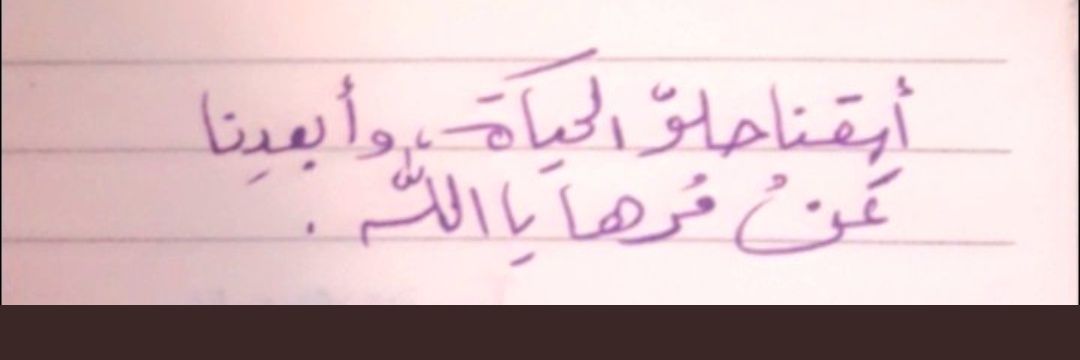 حلوّ الحياة ، وأبعدِنا
عَنْ مُرها يا اللّه .